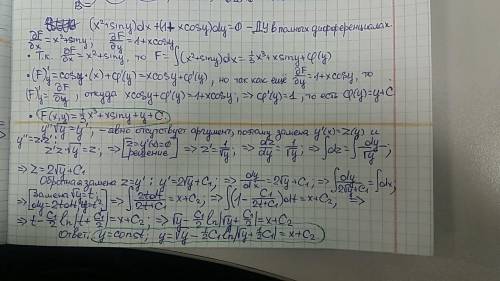 B=
(x²+siny)dx+(1+xcosy)dy=0 – ДУ в полных дифференциалах
∂F/∂x = x²+siny, ∂F/∂y = 1+xcosy
• Т.к. ∂F/∂x = x²+siny, то F=∫(x²+siny)dx = ⅓x³+xsiny+φ(y)
• (F)'y = cosy·(x)+φ'(y) = xcosy+φ'(y), но так как еще ∂F/∂y = 1+xcosy, то
(F)'y = ∂F/∂y, откуда xcosy+φ'(y)=1+xcosy, => φ'(y)=1, то есть φ(y)=y+C
• F(x,y) = ⅓x³+xsiny+y+C
y''√y = y', – явно отсутствует аргумент, поэтому замена y'(x)=z(y) и
y''=zz'; z'z√y = z; => [z=y'(x)=0 решение] => z' = 1/√y; => dz/dy = 1/√y; => ∫dz = ∫dy/√y;
=> z = 2√y + C₁
Обратная замена z=y'; y' = 2√y+C₁; => dy/dx = 2√y+C₁, => ∫dy/(2√y+C₁) = ∫dx,
=> [замена √y=t; dy=2tdt, y=t²] => ∫2tdt/(2t+C₁) = x+C₂; => ∫(1 - C₁/(2t+C₁))dt = x+C₂ =>
=> t - C₁/2 ln|t + C₁/2| = x+C₂; => √y - C₁/2 ln|√y + C₁/2| = x+C₂
Ответ: y=const; y=√y - ½C₁ln|√y + ½C₁| = x+C₂